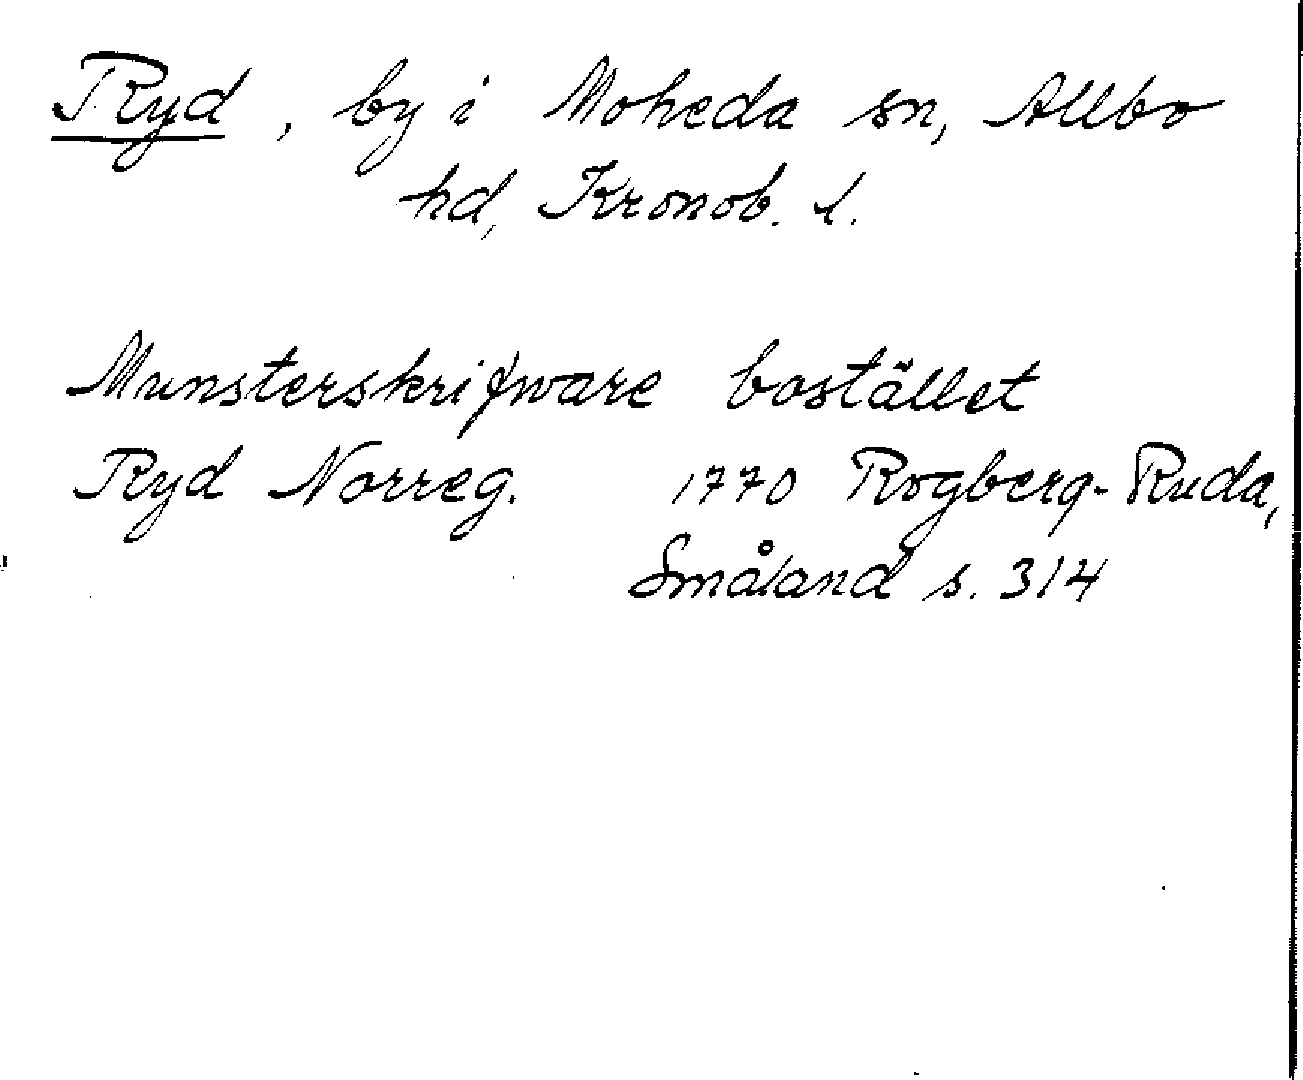 Ryd, by i Moheda sn, Allbo
hd, Kronob. l.
Munsterskrifware bostället
Ryd Norreg. 1770 Rogberg-Ruda,
Småland s. 314